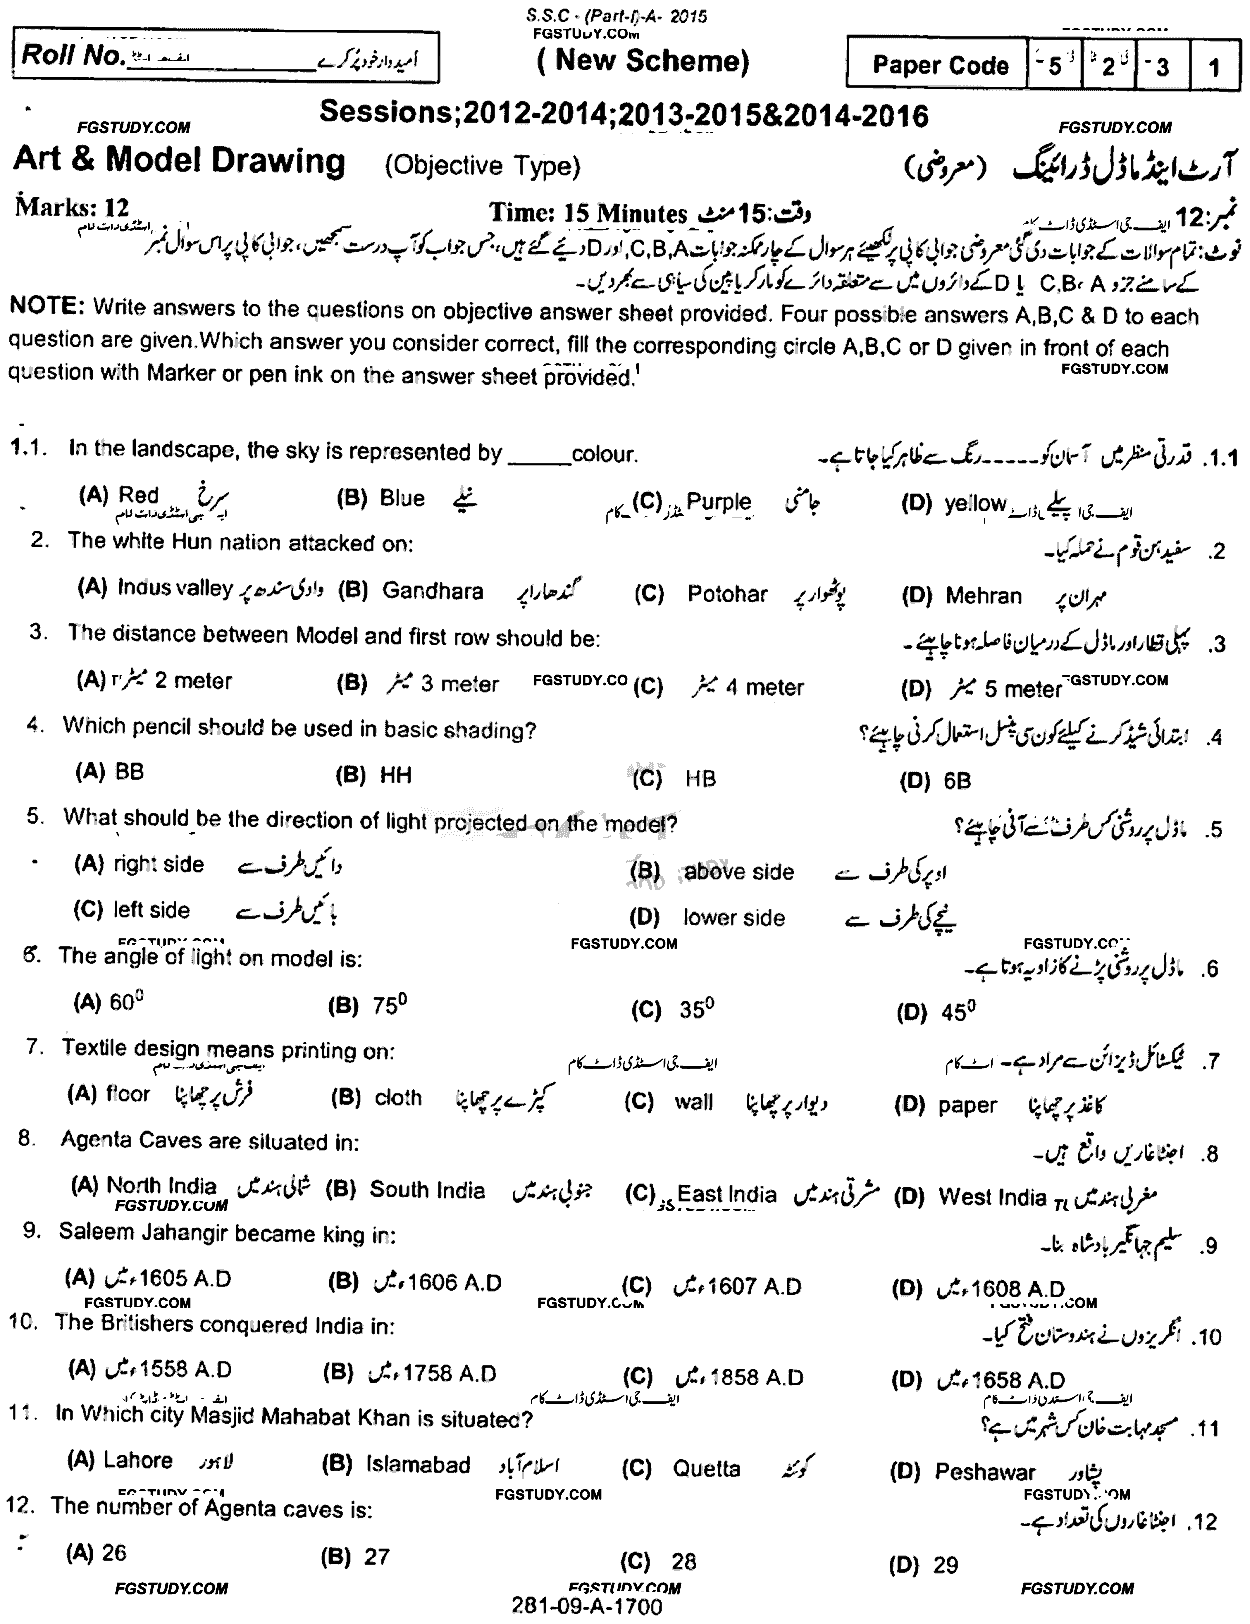 S.S.C - (Part-I)-A- 2015
FGSTUDY.COM
Roll No. ____________ امیدوار خود پُر کرے
( New Scheme)
Paper Code - 5 2 - 3 1
Sessions;2012-2014;2013-2015&2014-2016
FGSTUDY.COM FGSTUDY.COM
Art & Model Drawing (Objective Type) آرٹ اینڈ ماڈل ڈرائینگ (معروضی)
Marks: 12 Time: 15 Minutes وقت: 15 منٹ ایف جی اسٹڈی ڈاٹ کام نمبر: 12
نوٹ: تمام سوالات کے جوابات دی گئی معروضی جوابی کاپی پر لکھیئے ہر سوال کے چار ممکنہ جوابات C,B,A, اور D دیئے گئے ہیں، جس جواب کو آپ درست سمجھیں، جوابی کاپی پر اس سوال نمبر
کے سامنے جزو C,B، A یا D کے دائروں میں سے متعلقہ دائرے کو مارکر یا پین کی سیاہی سے بھر دیں۔
NOTE: Write answers to the questions on objective answer sheet provided. Four possible answers A,B,C & D to each
question are given.Which answer you consider correct, fill the corresponding circle A,B,C or D given in front of each
question with Marker or pen ink on the answer sheet provided. FGSTUDY.COM
1.1. In the landscape, the sky is represented by _____colour. 1.1. قدرتی منظر میں آسمان کو-----رنگ سے ظاہر کیا جاتا ہے۔
(A) Red سرخ (B) Blue نیلے (C) Purple جامنی (D) yellow پیلے
2. The white Hun nation attacked on: 2. سفید ہن قوم نے حملہ کیا۔
(A) Indus valley وادی سندھ پر (B) Gandhara گندھارا پر (C) Potohar پوٹھوار پر (D) Mehran مہران پر
3. The distance between Model and first row should be: 3. پہلی قطار اور ماڈل کے درمیان فاصلہ ہونا چاہیئے۔
(A) میٹر 2 meter (B) میٹر 3 meter FGSTUDY.CO (C) میٹر 4 meter (D) میٹر 5 meter FGSTUDY.COM
4. Which pencil should be used in basic shading? 4. ابتدائی شیڈ کرنے کیلئے کون سی پنسل استعمال کرنی چاہیئے؟
(A) BB (B) HH (C) HB (D) 6B
5. What should be the direction of light projected on the model? 5. ماڈل پر روشنی کس طرف سے آنی چاہیئے؟
(A) right side دائیں طرف سے (B) above side اوپر کی طرف سے
(C) left side بائیں طرف سے (D) lower side نیچے کی طرف سے
FGSTUDY.COM FGSTUDY.COM FGSTUDY.CO
6. The angle of light on model is: 6. ماڈل پر روشنی پڑنے کا زاویہ ہوتا ہے۔
(A) 60⁰ (B) 75⁰ (C) 35⁰ (D) 45⁰
7. Textile design means printing on: ایف جی اسٹڈی ڈاٹ کام 7. ٹیکسٹائل ڈیزائن سے مراد ہے۔
(A) floor فرش پر چھاپنا (B) cloth کپڑے پر چھاپنا (C) wall دیوار پر چھاپنا (D) paper کاغذ پر چھاپنا
8. Agenta Caves are situated in: 8. اجنتا غاریں واقع ہیں۔
(A) North India شمالی ہند میں (B) South India جنوبی ہند میں (C) East India مشرقی ہند میں (D) West India مغربی ہند میں
FGSTUDY.COM
9. Saleem Jahangir became king in: 9. سلیم جہانگیر بادشاہ بنا۔
(A) میں ء1605 A.D (B) میں ء1606 A.D (C) میں ء1607 A.D (D) میں ء1608 A.D
FGSTUDY.COM FGSTUDY.COM
10. The Britishers conquered India in: 10. انگریزوں نے ہندوستان فتح کیا۔
(A) میں ء1558 A.D (B) میں ء1758 A.D (C) میں ء1858 A.D (D) میں ء1658 A.D
ایف جی اسٹڈی ڈاٹ کام ایف جی اسٹڈی ڈاٹ کام
11. In Which city Masjid Mahabat Khan is situated? 11. مسجد مہابت خان کس شہر میں ہے؟
(A) Lahore لاہور (B) Islamabad اسلام آباد (C) Quetta کوئٹہ (D) Peshawar پشاور
FGSTUDY.COM FGSTUDY.COM
12. The number of Agenta caves is: 12. اجنتا غاروں کی تعداد ہے۔
(A) 26 (B) 27 (C) 28 (D) 29
FGSTUDY.COM FGSTUDY.COM FGSTUDY.COM
281-09-A-1700